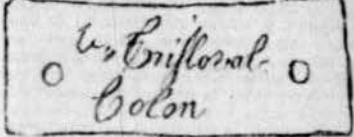 Cristoval
Colon